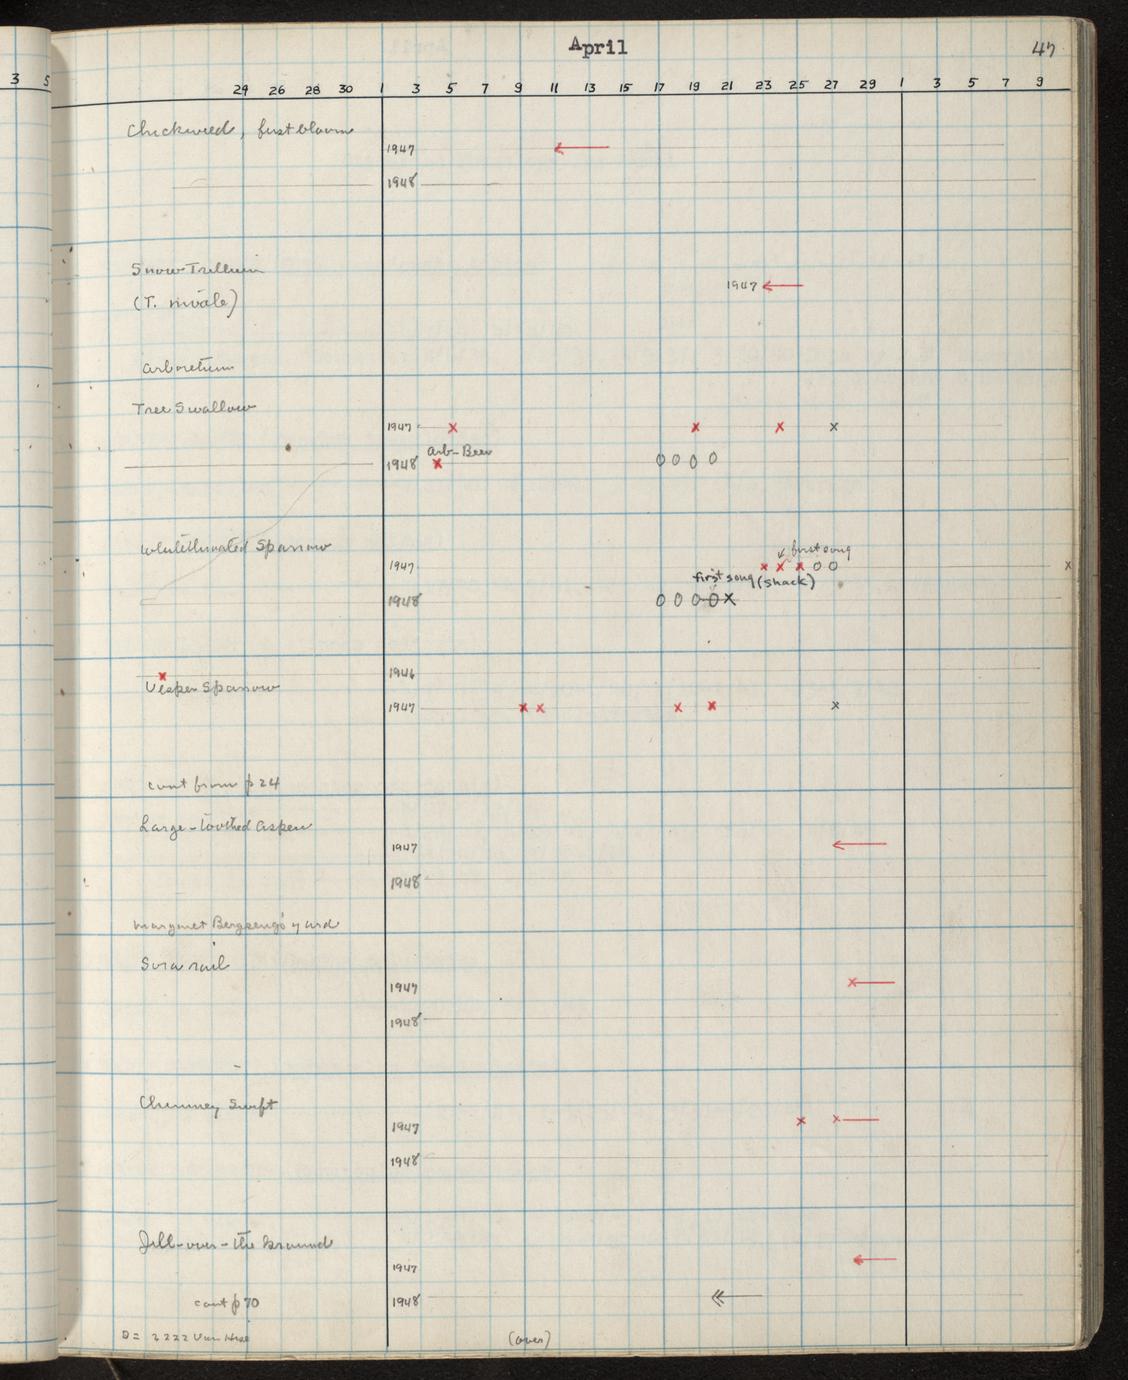 April
47
3 5 29 26 28 30 1 3 5 7 9 11 13 15 17 19 21 23 25 27 29 1 3 5 7 9
Chickweed, first bloom
1947
1948
Snow Trillium
1947
(T. nivale)
Arboretum
Tree Swallow
1947 x x x x
Arb-Beer
1948 x 0 0 0 0
Whitethroated Sparrow
first song
1947 x x x 0 0 x
first song (shack)
1948 0 0 0 0 x
x 1946
Vesper Sparrow
1947 x x x x x
cont from p 24
Large-toothed Aspen
1947
1948
Margaret Bergseng's yard
Sora rail
1947 x
1948
Chimney Swift
1947 x x
1948
Jill-over-the Ground
1947
cont p 70 1948
D = 2222 Van Hise (over)